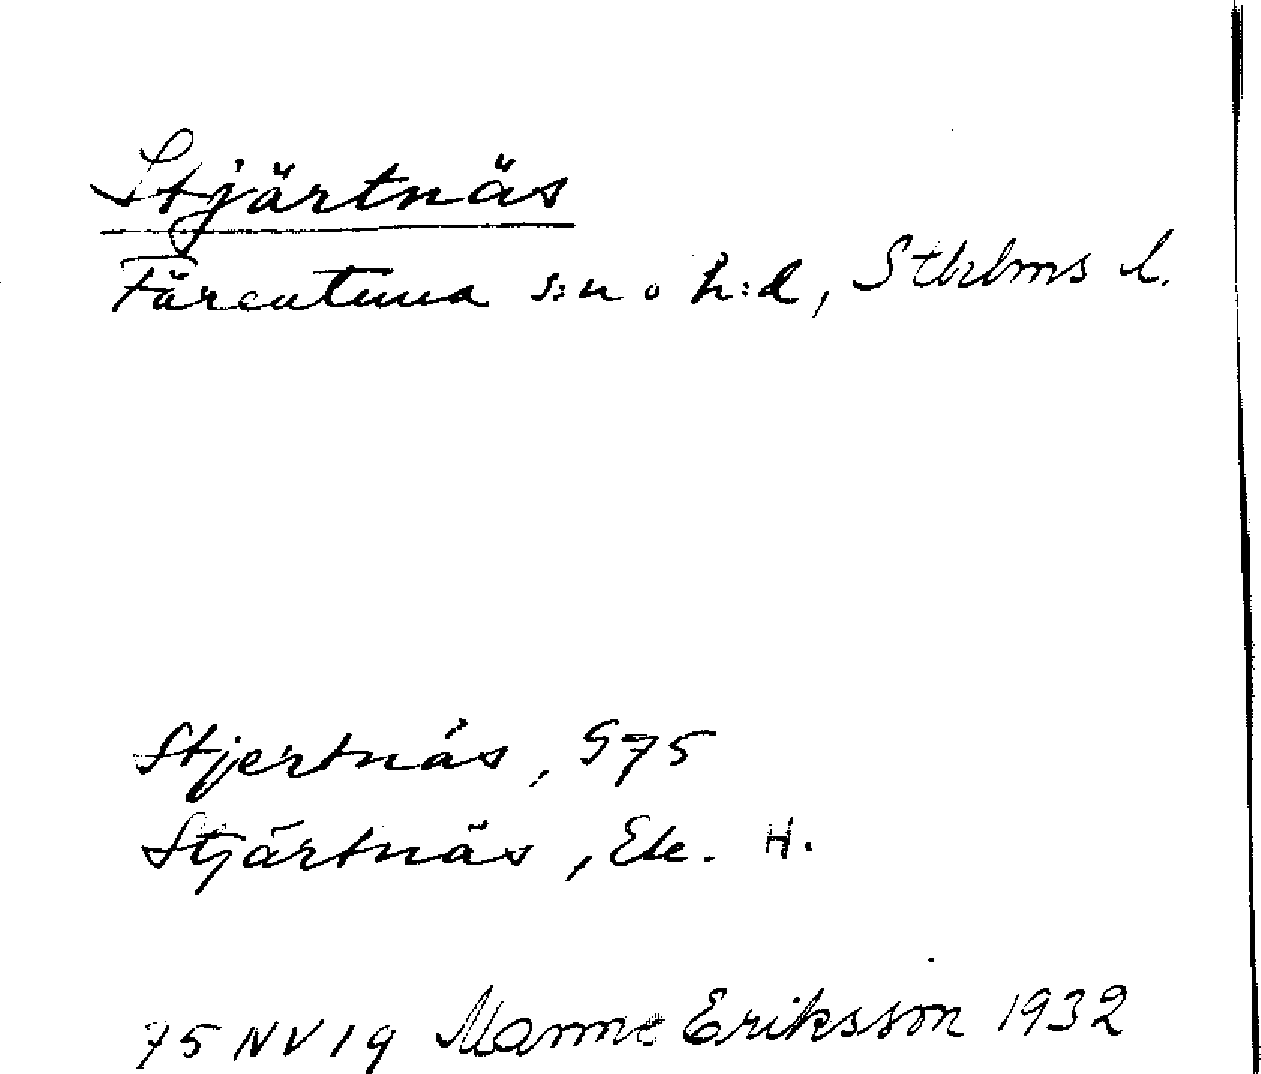 Stjärtnäs
Färentuna s:n o h:d, Sthlms l.
Stjertnäs, G75
Stjärtnäs, Ek. H.
75 NV 19 Manne Eriksson 1932